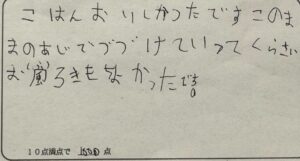 こはんおいしかったですこのま
まのあじでつづけていってくらさい
お(風)ろきもちかったです。
10点満点で 1000 点